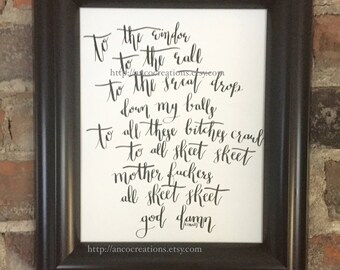 to the window
to the wall
http://ancocreations.etsy.com
to the sweat drop
down my balls
to all these bitches crawl
to all skeet skeet
mother fuckers
all skeet skeet
god damn
http://ancocreations.etsy.com